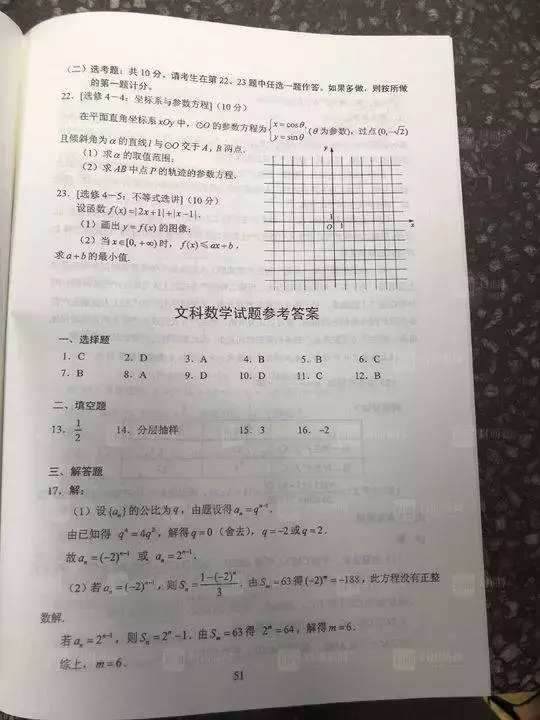 (二)选考题:共 10 分。请考生在第 22、23 题中任选一题作答。如果多做,则按所做
的第一题计分。
22. [选修 4-4:坐标系与参数方程](10 分)
在平面直角坐标系 xOy 中,⊙O 的参数方程为{x=cosθ, y=sinθ (θ 为参数),过点 (0,-√2)
且倾斜角为 α 的直线 l 与⊙O 交于 A,B 两点.
(1)求 α 的取值范围;
(2)求 AB 中点 P 的轨迹的参数方程.
23. [选修 4-5:不等式选讲](10 分)
设函数 f(x)=|2x+1|+|x-1|.
(1)画出 y=f(x) 的图像;
(2)当 x∈[0,+∞) 时,f(x)≤ax+b,
求 a+b 的最小值.
y
1
O 1 x
文科数学试题参考答案
一、选择题
1. C 2. D 3. A 4. B 5. B 6. C
7. B 8. A 9. D 10. D 11. C 12. B
二、填空题
13. 1/2 14. 分层抽样 15. 3 16. -2
三、解答题
17. 解:
(1)设{aₙ}的公比为 q,由题设得 aₙ=qⁿ⁻¹.
由已知得 q⁴=4q²,解得 q=0(舍去),q=-2 或 q=2.
故 aₙ=(-2)ⁿ⁻¹ 或 aₙ=2ⁿ⁻¹.
(2)若 aₙ=(-2)ⁿ⁻¹,则 Sₙ=(1-(-2)ⁿ)/3. 由 Sₘ=63 得 (-2)ᵐ=-188,此方程没有正整
数解.
若 aₙ=2ⁿ⁻¹,则 Sₙ=2ⁿ-1. 由 Sₘ=63 得 2ᵐ=64,解得 m=6.
综上,m=6.
51